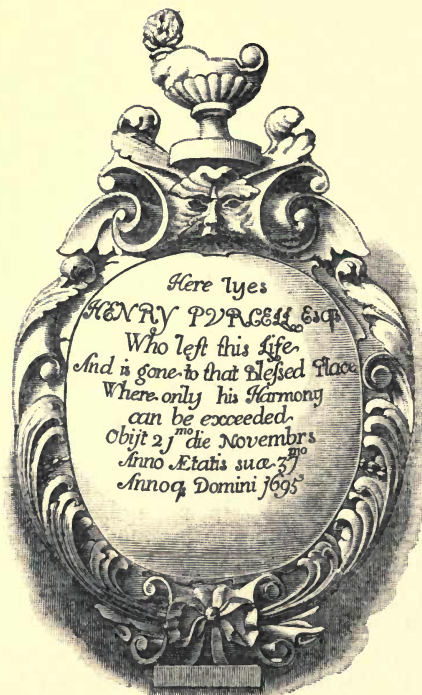 Here lyes
HENRY PVRCELL Esqr
Who left this Life
And is gone to that Blessed Place
Where only his Harmony
can be exceeded.
Obijt 21mo die Novembrs
Anno Ætatis suæ 37mo
Annoq Domini 1695